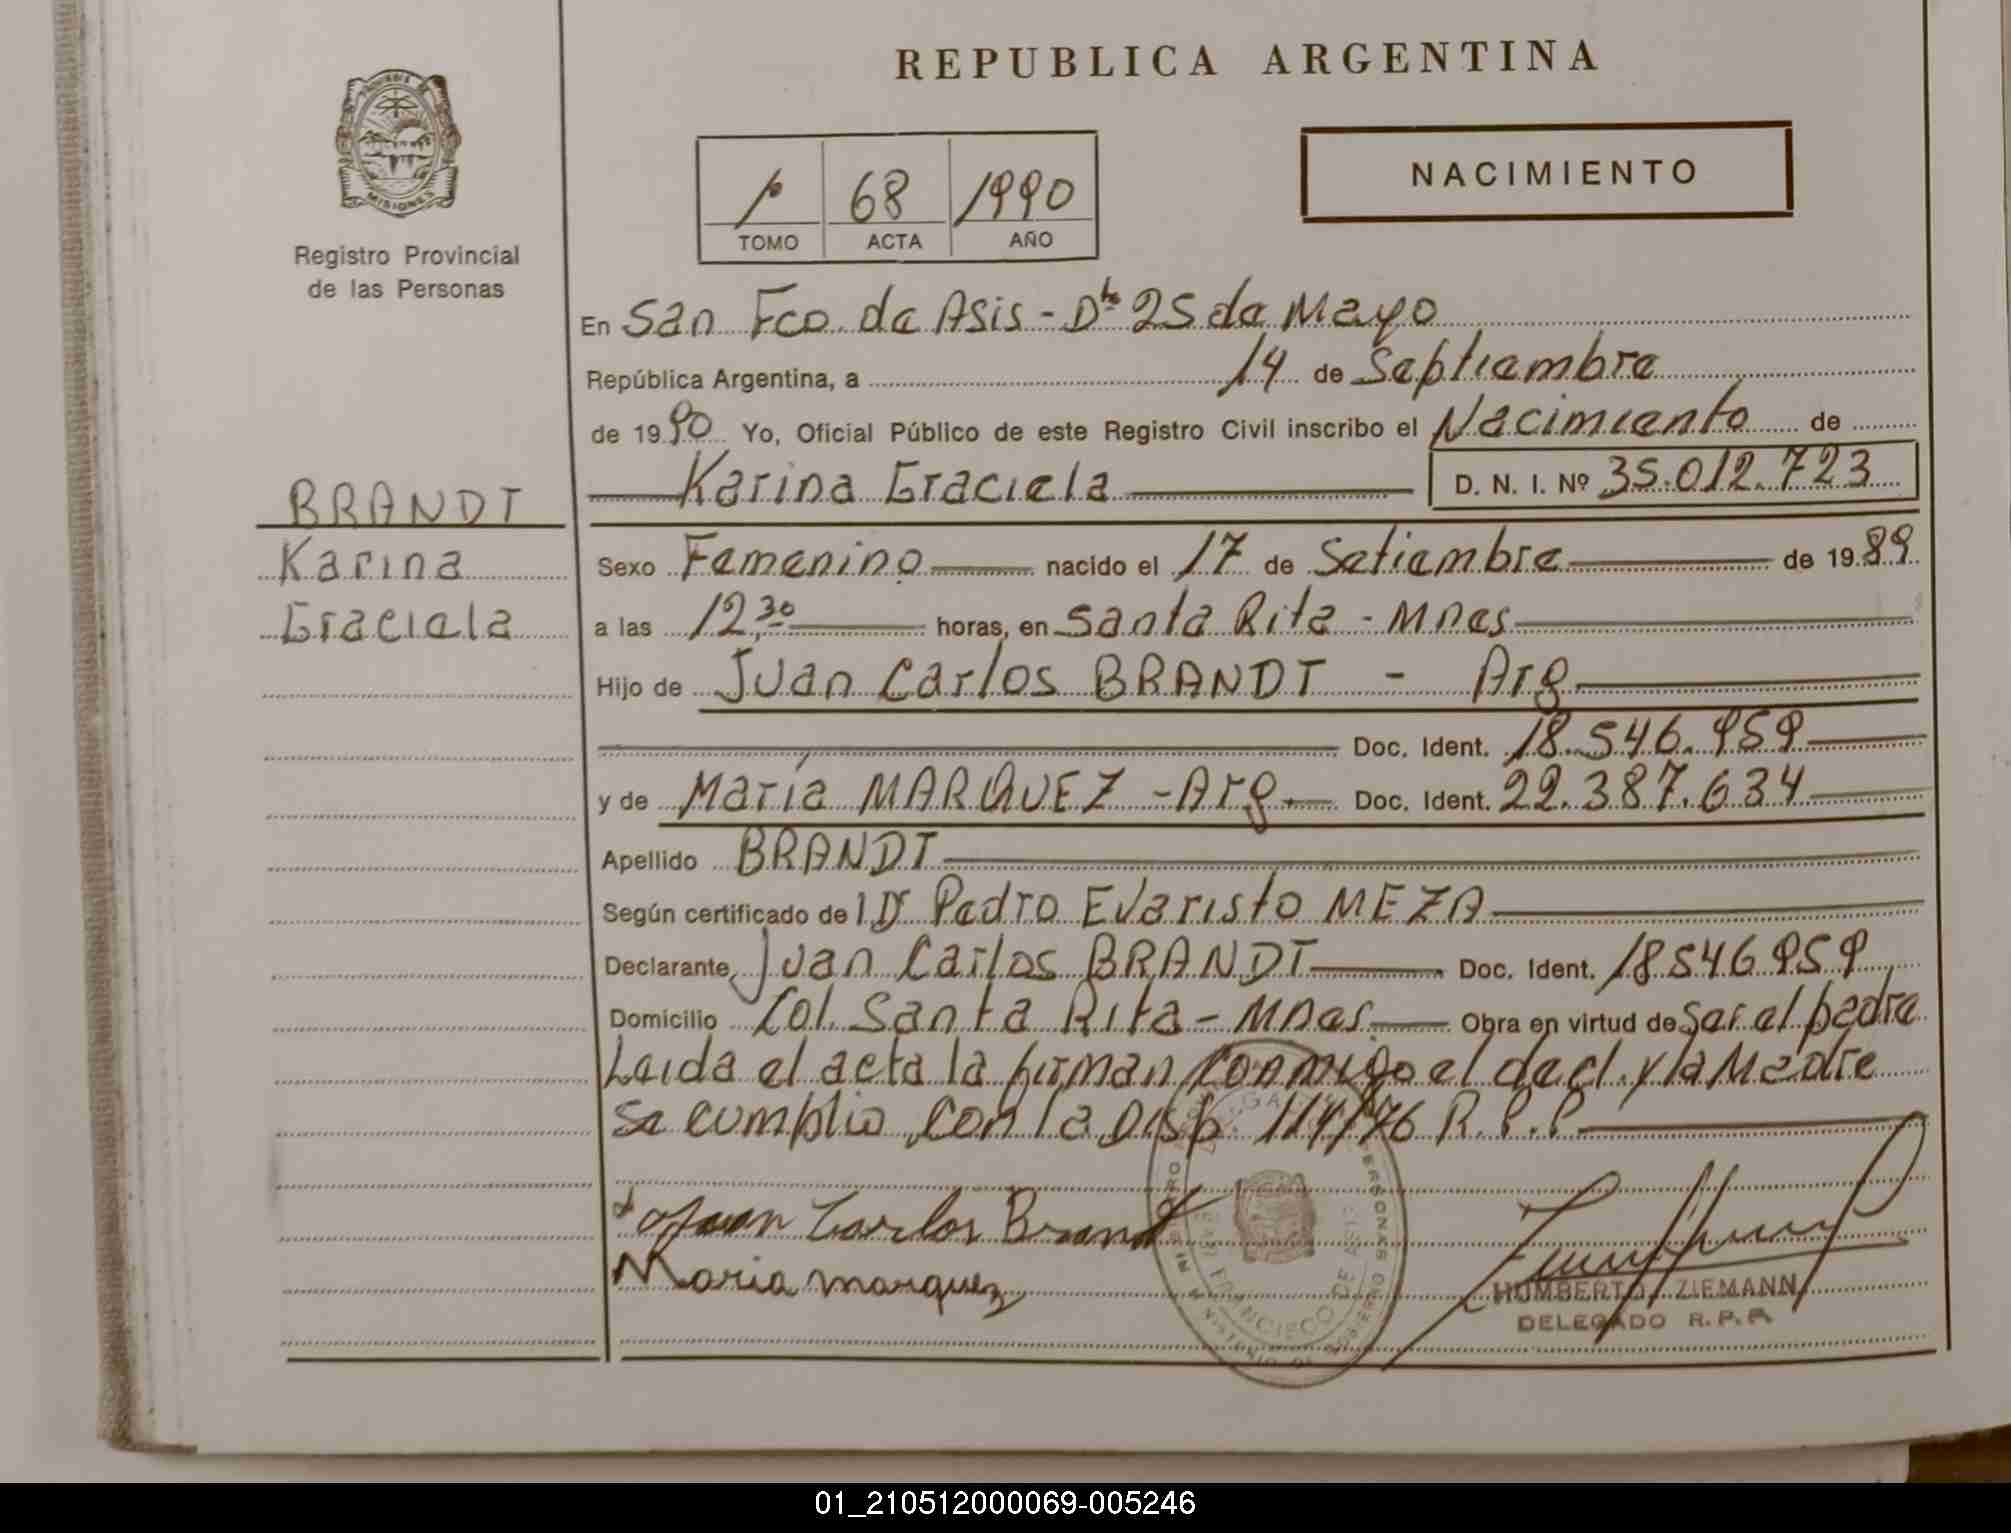 REPUBLICA ARGENTINA
NACIMIENTO
1º 68 1990
TOMO ACTA AÑO
MISIONES
Registro Provincial
de las Personas
En San Fco. de Asis - Dto 25 de Mayo
República Argentina, a 14 de Septiembre
de 1990 Yo, Oficial Público de este Registro Civil inscribo el Nacimiento de
Karina Graciela D. N. I. Nº 35.012.723
BRANDT
Karina
Graciela
Sexo Femenino nacido el 17 de Setiembre de 1989
a las 12,30 horas, en Santa Rita - Mnes
Hijo de Juan Carlos BRANDT - Arg
Doc. Ident. 18.546.959
y de María MARQUEZ - Arg. Doc. Ident. 22.387.634
Apellido BRANDT
Según certificado de 1 Dr Pedro Evaristo MEZA
Declarante, Juan Carlos BRANDT Doc. Ident. 18546959
Domicilio Col. Santa Rita - Mnes. Obra en virtud de ser el padre
Leida el acta la firman conmigo el decl. y la Madre
Se cumplio con la Disp. 114/76 R.P.P.
Juan Carlos Brandt
Maria marquez
HUMBERTO ZIEMANN
DELEGADO R.P.P.
01_210512000069-005246